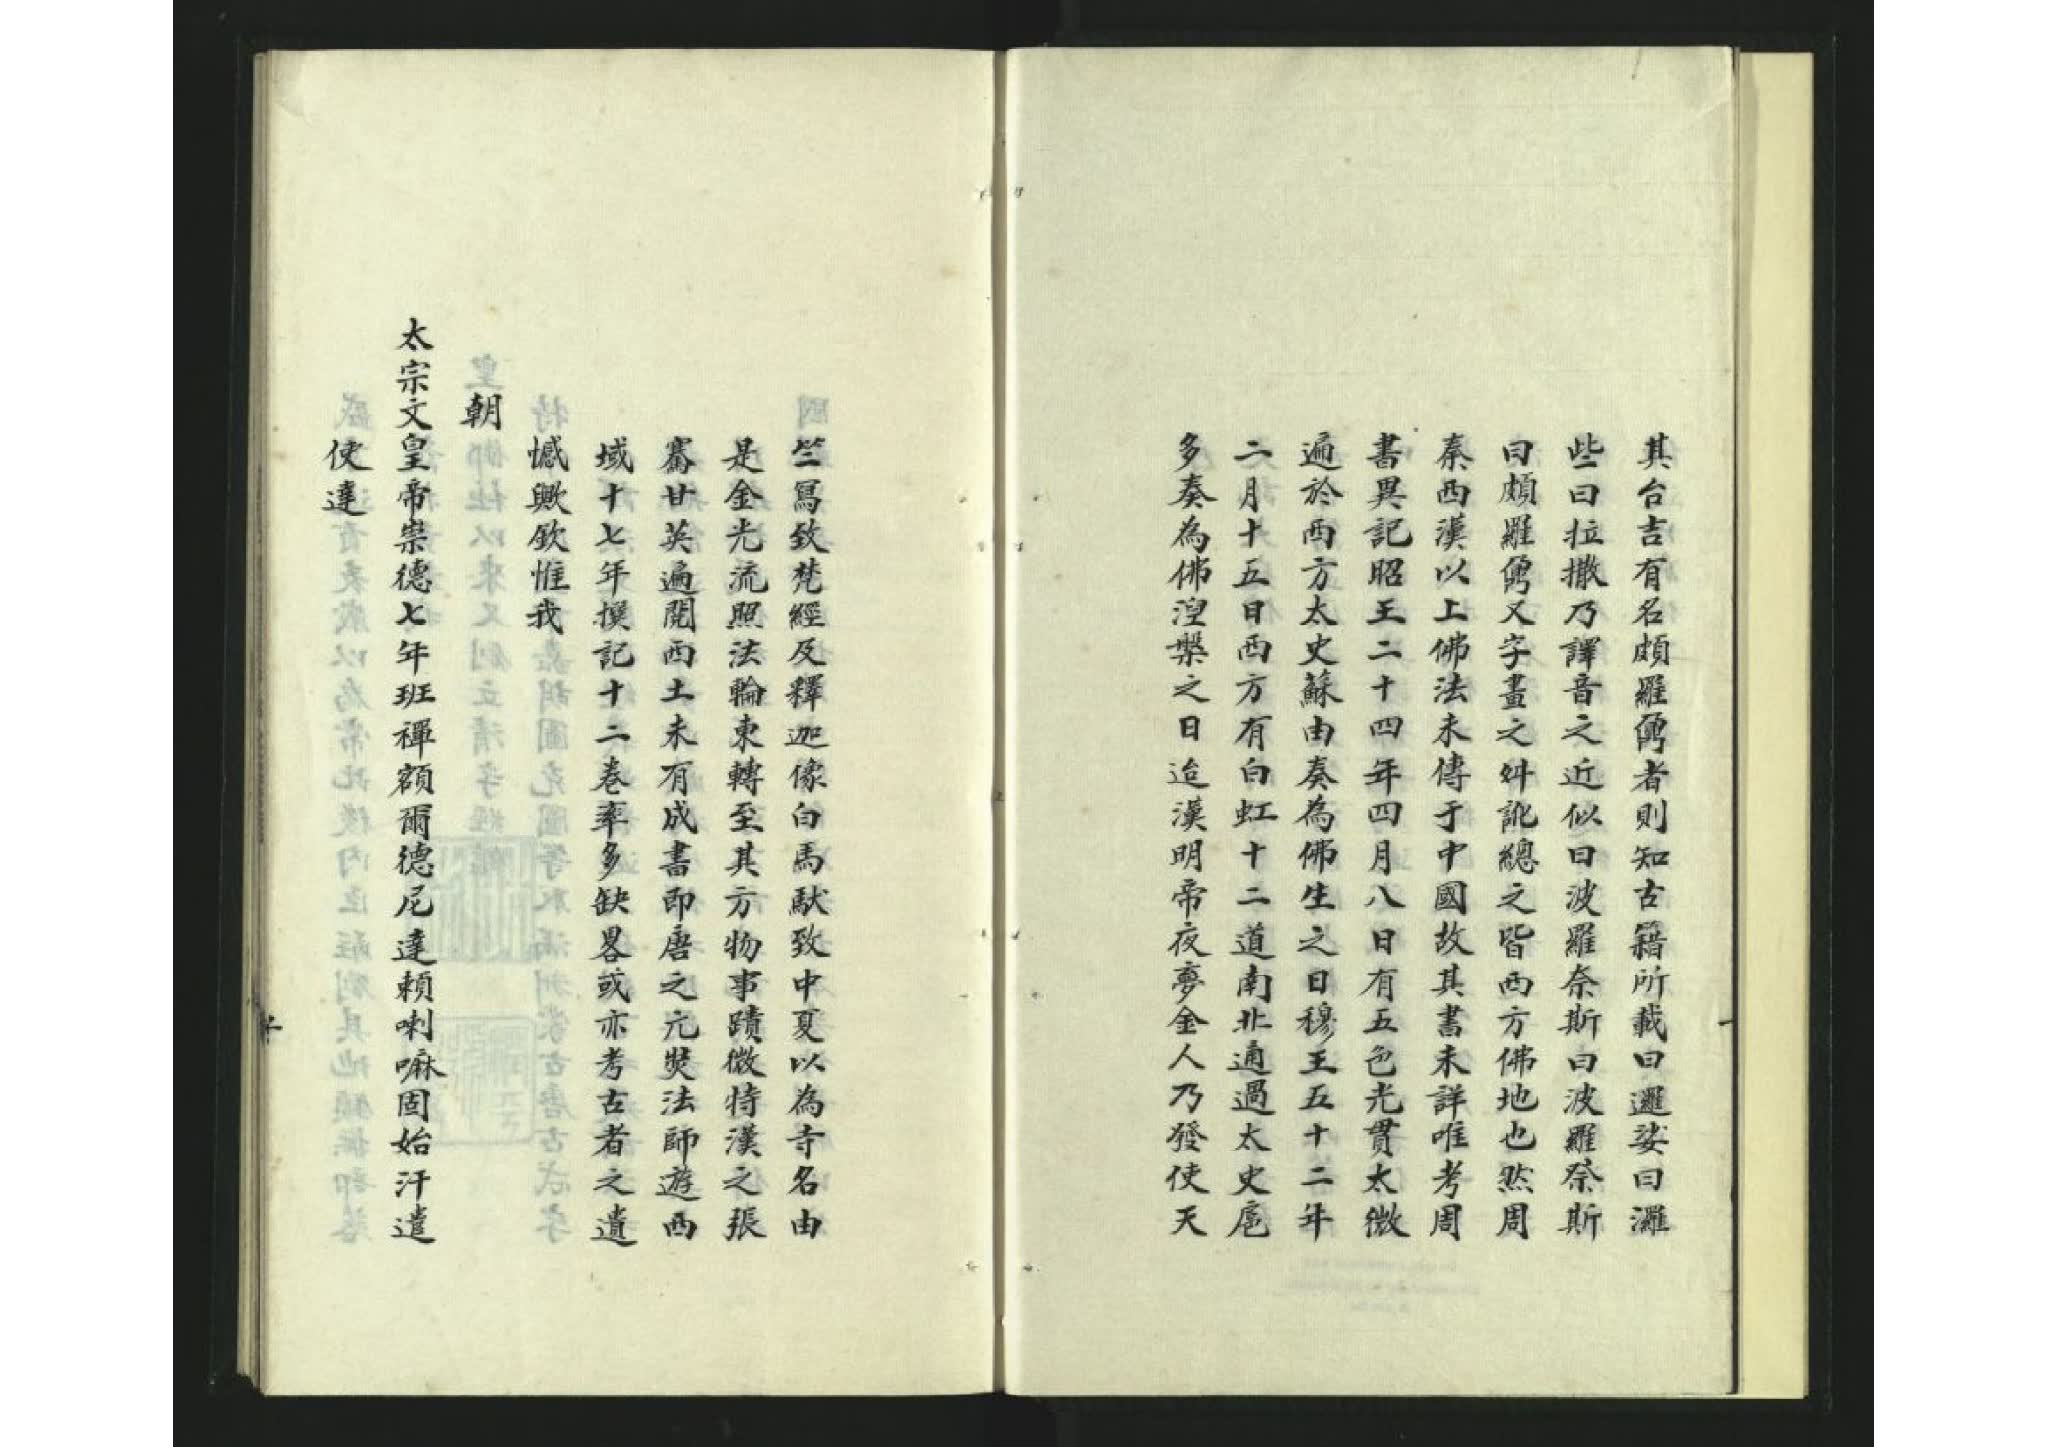 其台吉有名頗羅鼐者則知古籍所載曰邏娑曰灑
些曰拉撒乃譯音之近似曰波羅奈斯曰波羅奈斯
曰頗羅鼐又字畫之舛訛總之皆西方佛地也然周
秦西漢以上佛法未傳于中國故其書未詳唯考周
書異記昭王二十四年四月八日有五色光貫太微
遍於西方太史蘇由奏為佛生之日穆王五十二年
二月十五日西方有白虹十二道南北通過太史扈
多奏為佛涅槃之日迨漢明帝夜夢金人乃發使天
竺寫致梵經及釋迦像白馬馱致中夏以為寺名由
是金光流照法輪東轉至其方物事蹟微特漢之張
騫甘英遍閱西土未有成書即唐之元奘法師遊西
域十七年撰記十二卷率多缺畧或亦考古者之遺
憾歟欽惟我
朝
太宗文皇帝崇德七年班禪額爾德尼達賴喇嘛固始汗遣
使達